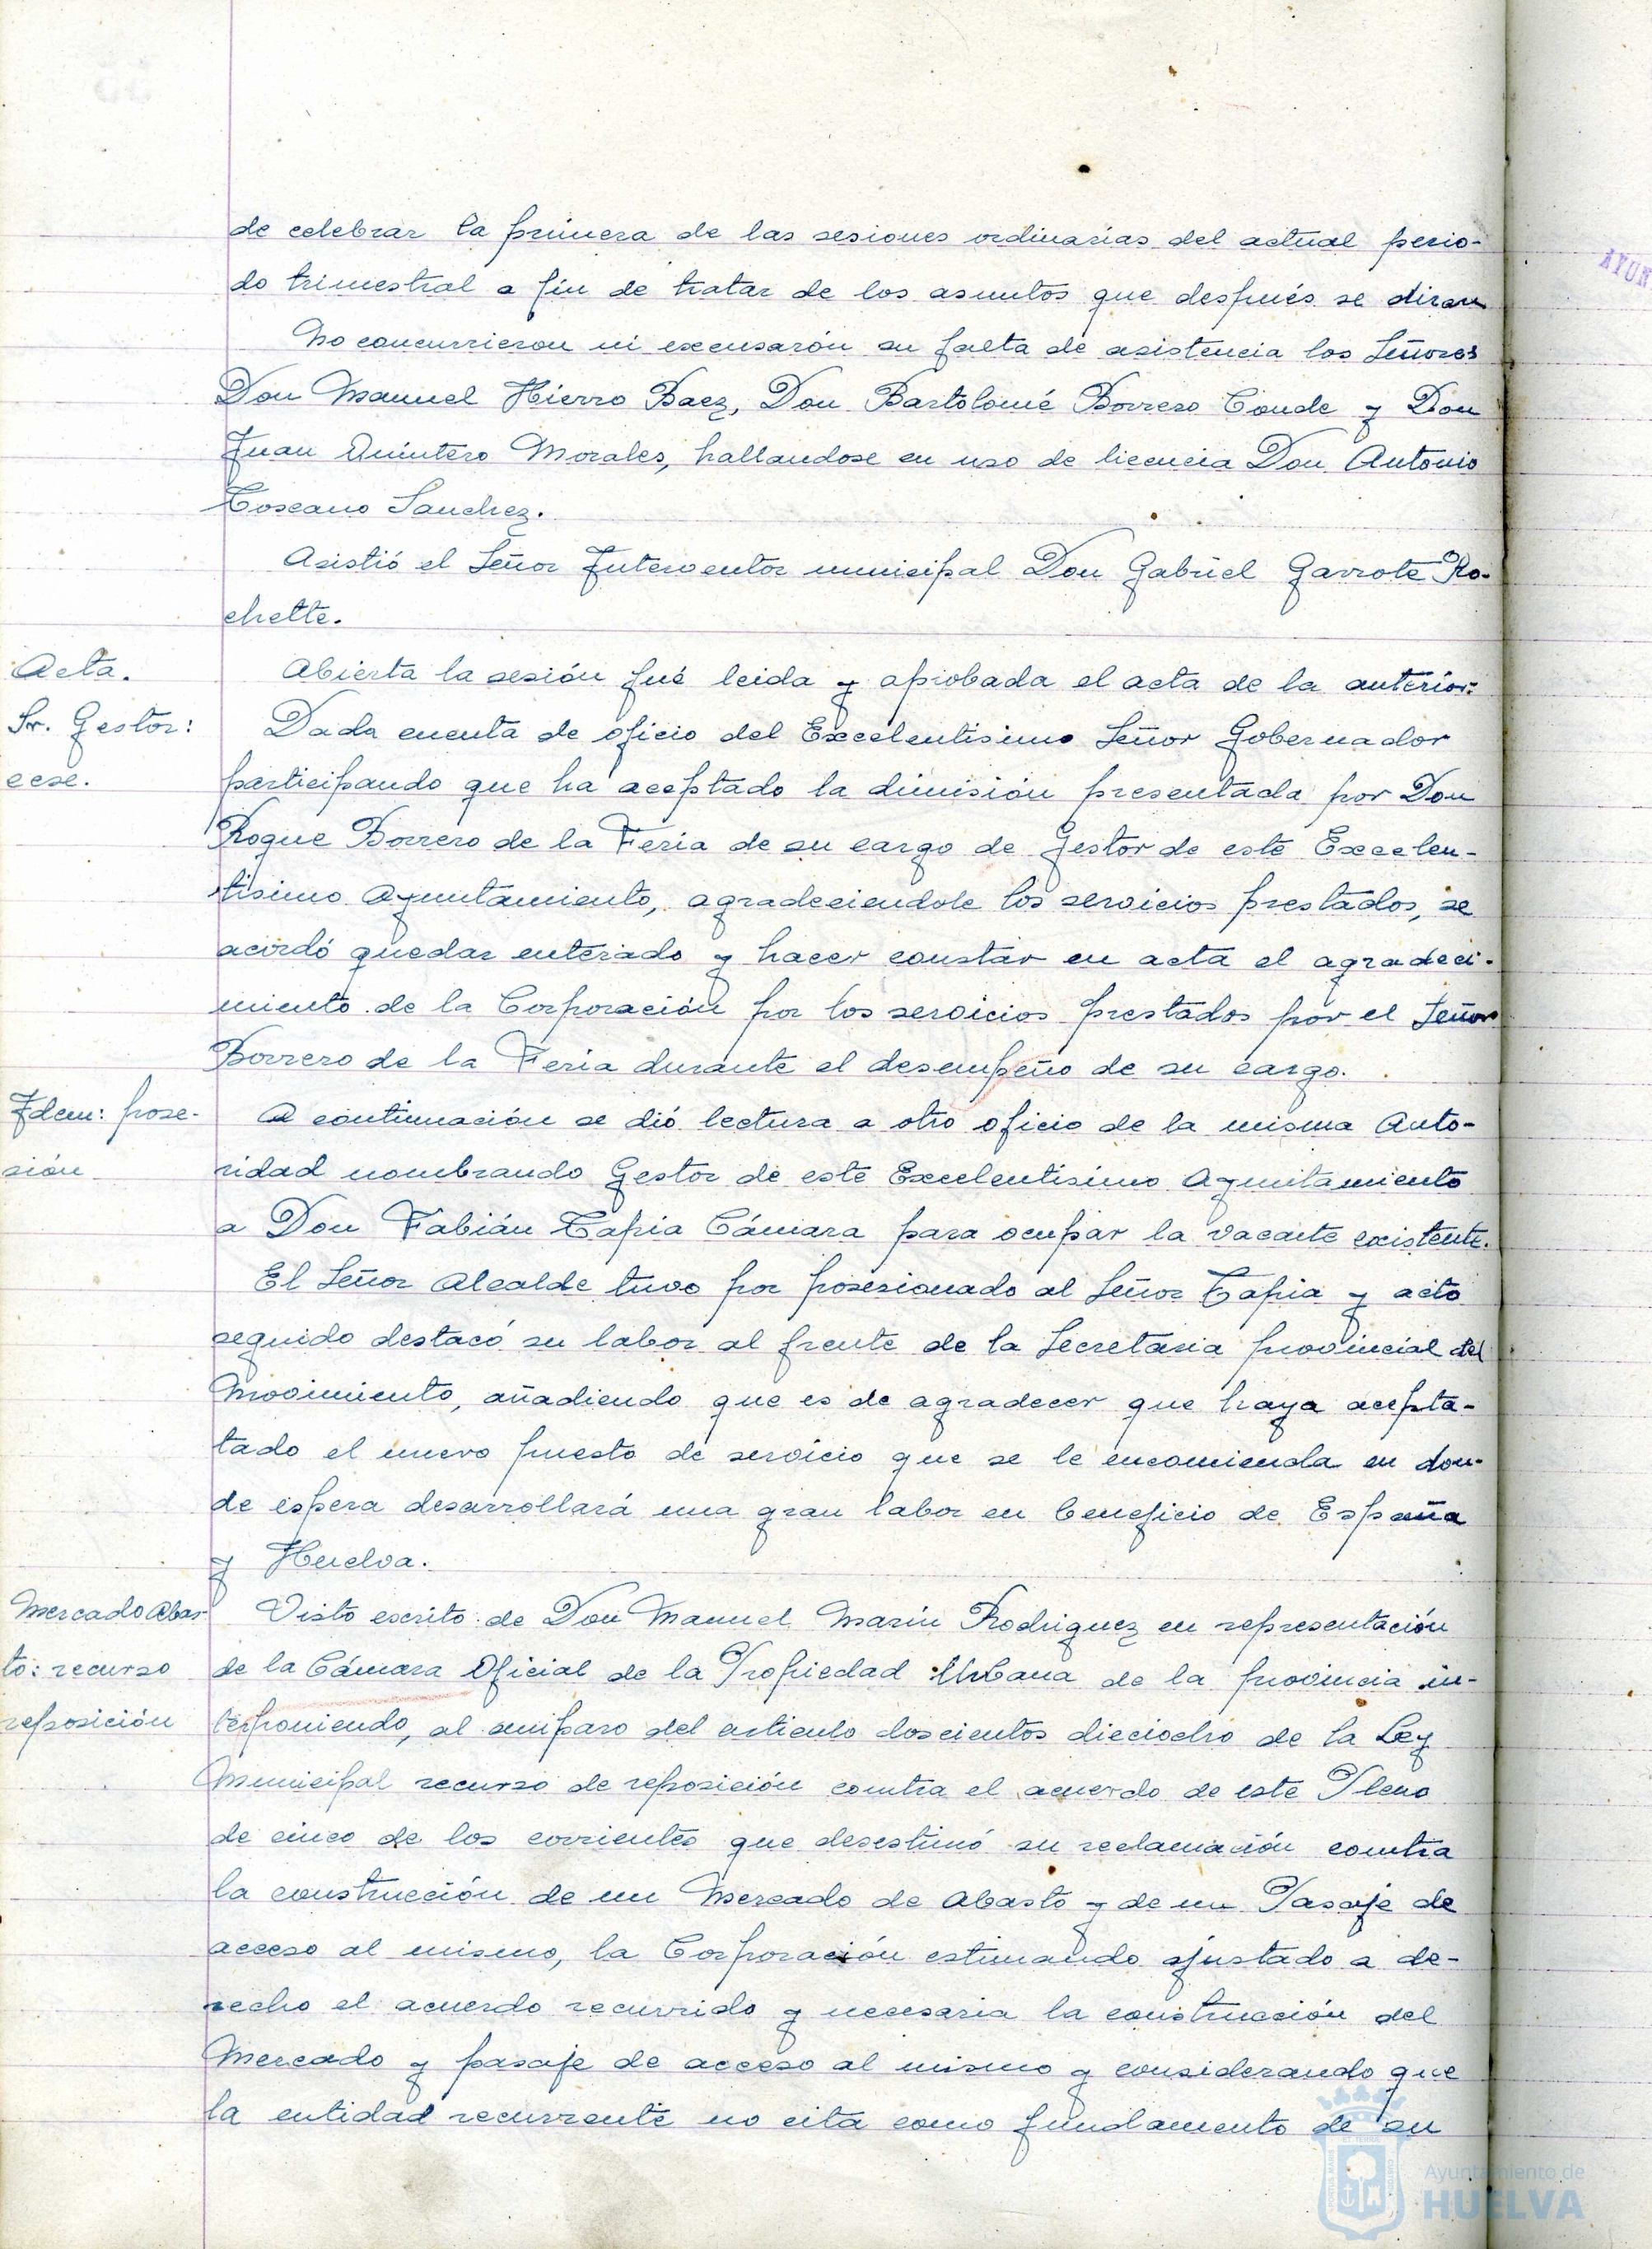 de celebrar la primera de las sesiones ordinarias del actual perio-
do trimestral a fin de tratar de los asuntos que después se diran
No concurrieron ni excusarón su falta de asistencia los Señores
Don Manuel Hierro Baez, Don Bartolomé Borrero Conde y Don
Juan Quintero Morales, hallandose en uso de licencia Don Antonio
Toscano Sanchez.
Asistió el Señor Interventor municipal Don Gabriel Garrote Ro-
chette.
Acta.
Abierta la sesión fué leida y aprobada el acta de la anterior.
Sr. Gestor:
Dada cuenta de oficio del Excelentisimo Señor Gobernador
cese.
participando que ha aceptado la dimisión presentada por Don
Roque Borrero de la Feria de su cargo de Gestor de este Excelen-
tisimo Ayuntamiento, agradeciendole los servicios prestados, se
acordó quedar enterado y hacer constar en acta el agradeci-
miento de la Corporación por los servicios prestados por el Señor
Borrero de la Feria durante el desempeño de su cargo.
Idem: pose-
A continuación se dió lectura a otro oficio de la misma Auto-
sión
ridad nombrando Gestor de este Excelentisimo Ayuntamiento
a Don Fabián Tapia Cámara para ocupar la vacante existente.
El Señor Alcalde tuvo por posesionado al Señor Tapia y acto
seguido destacó su labor al frente de la Secretaria provincial del
Movimiento, añadiendo que es de agradecer que haya acepta-
tado el nuevo puesto de servicio que se le encomienda en don-
de espera desarrollará una gran labor en beneficio de España
y Huelva.
Mercado Abas-
Visto escrito de Don Manuel Marin Rodriguez en representación
to: recurso
de la Cámara Oficial de la Propiedad Urbana de la provincia in-
reposición
terponiendo, al amparo del articulo doscientos dieciocho de la Ley
Municipal recurso de reposición contra el acuerdo de este Pleno
de cinco de los corrientes que desestimó su reclamación contra
la construcción de un Mercado de Abasto y de un Pasaje de
acceso al mismo, la Corporación estimando ajustado a de-
recho el acuerdo recurrido y necesaria la construcción del
Mercado y pasaje de acceso al mismo y considerando que
la entidad recurrente no cita como fundamento de su
AYUN
Ayuntamiento de
HUELVA